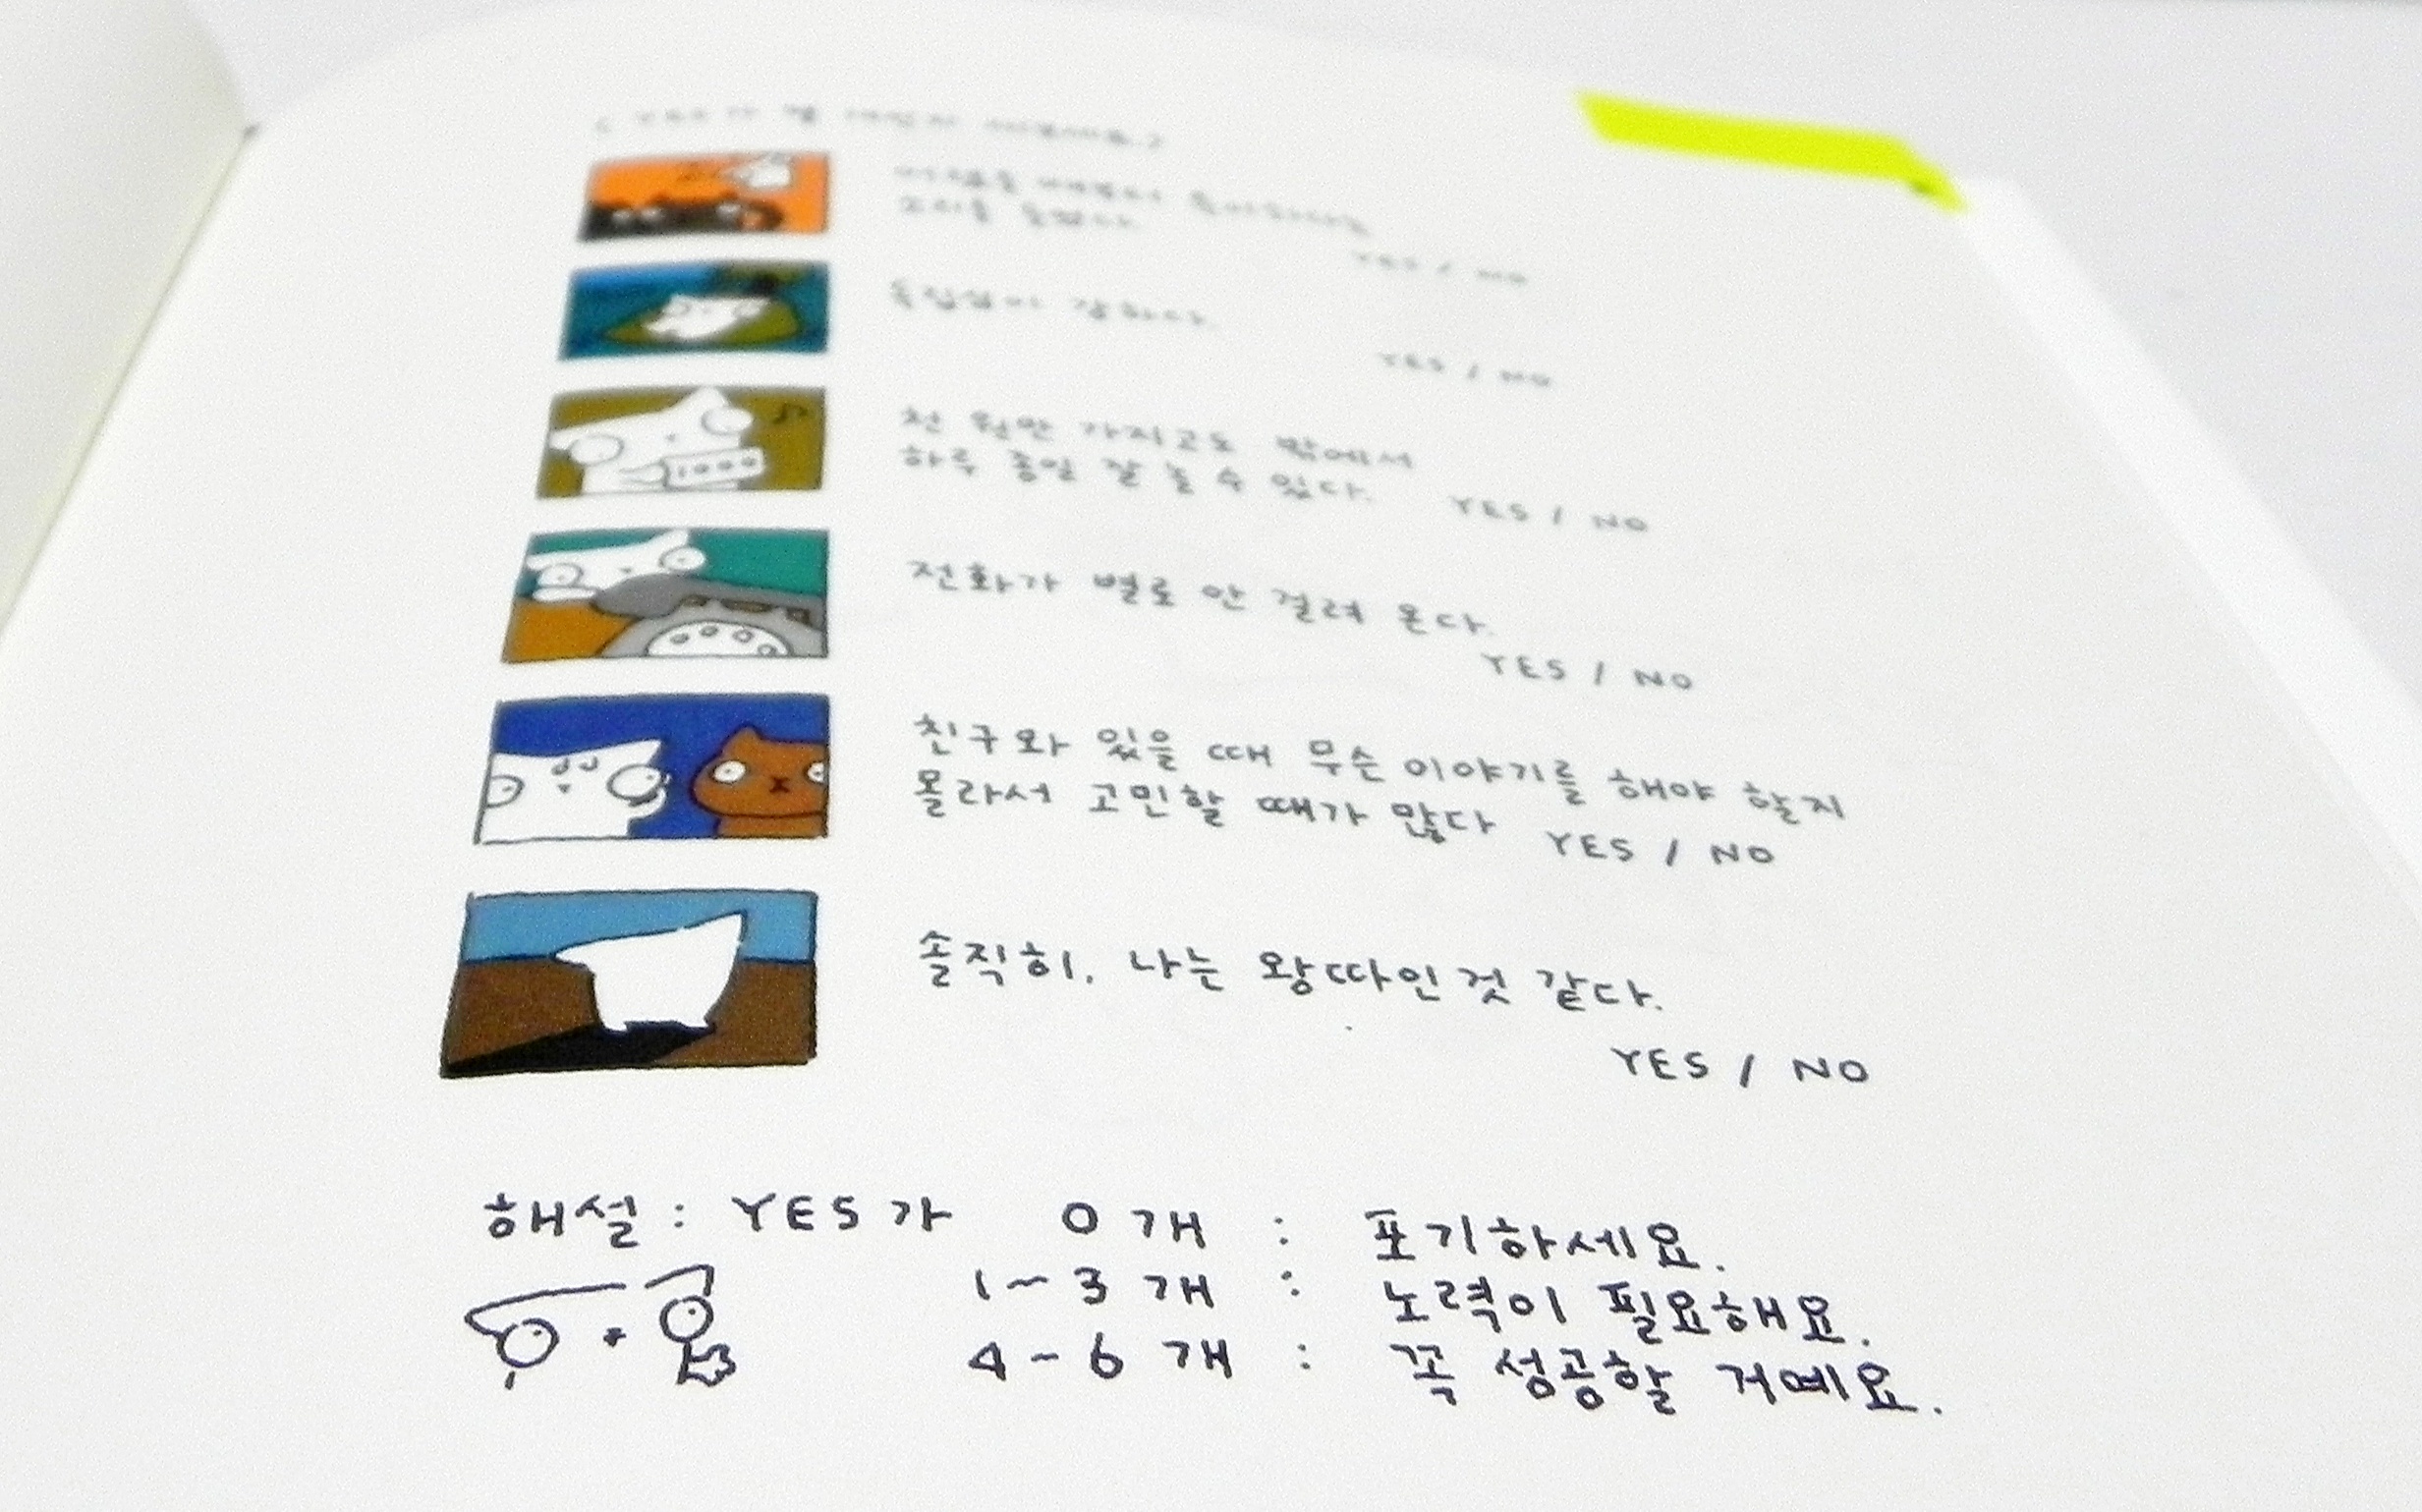 ( YES 가 몇 개인지 세보세요.)
소리를 들었다.
YES / NO
독립심이 강하다.
YES / NO
천 원만 가지고도 밖에서
하루 종일 잘 놀 수 있다. YES / NO
1000
전화가 별로 안 걸려 온다.
YES / NO
친구와 있을 때 무슨 이야기를 해야 할지
몰라서 고민할 때가 많다 YES / NO
솔직히, 나는 왕따인 것 같다.
YES / NO
해설 : YES 가 0 개 : 포기하세요.
1~3 개 : 노력이 필요해요.
4~6 개 : 꼭 성공할 거예요.